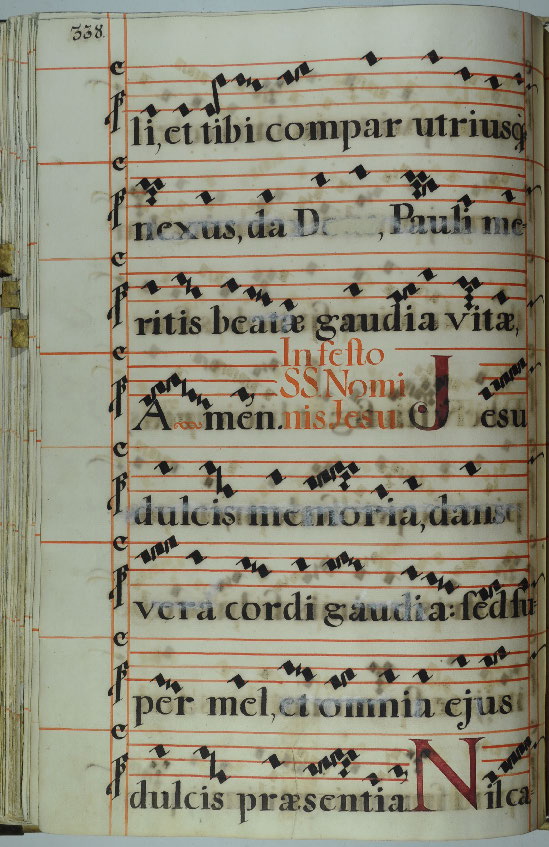 338.
li, et tibi compar utriusq̃
nexus, da D , Pauli me-
ritis beatæ gaudia vitæ,
In festo
SS Nomi
Amen. nis Jesu. Jesu
dulcis memoria, dans
vera cordi gaudia: sed su
per mel, et omnia ejus
dulcis præsentia Nil ca-